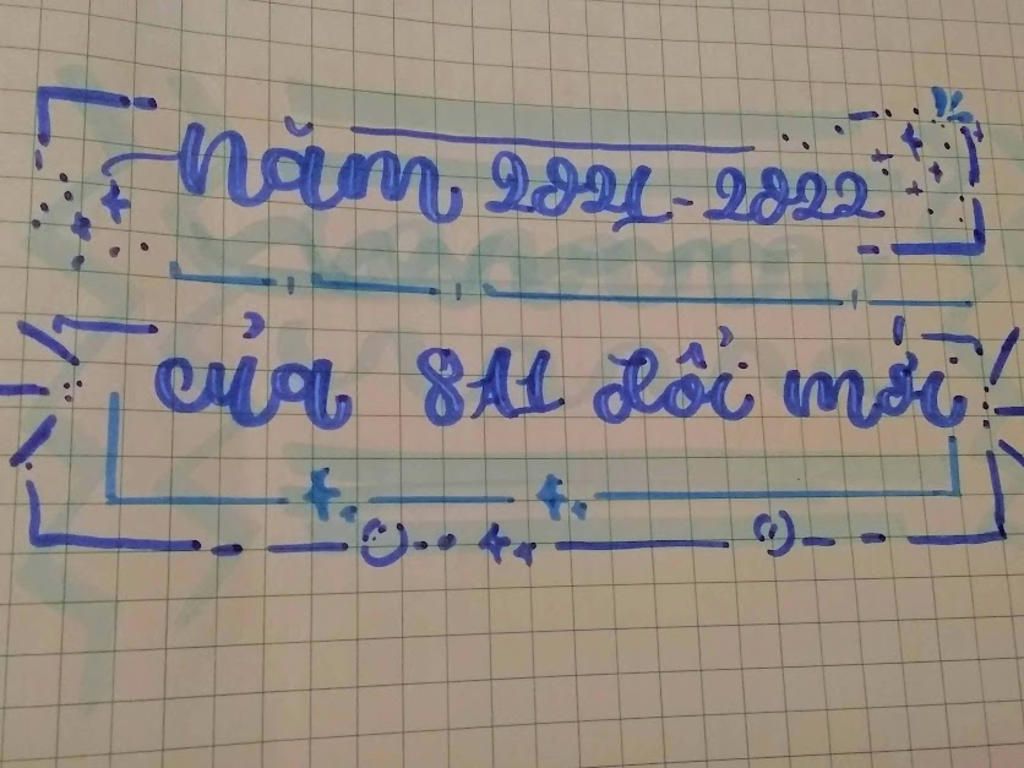 Năm 2021-2022
của 8A1 đổi mới